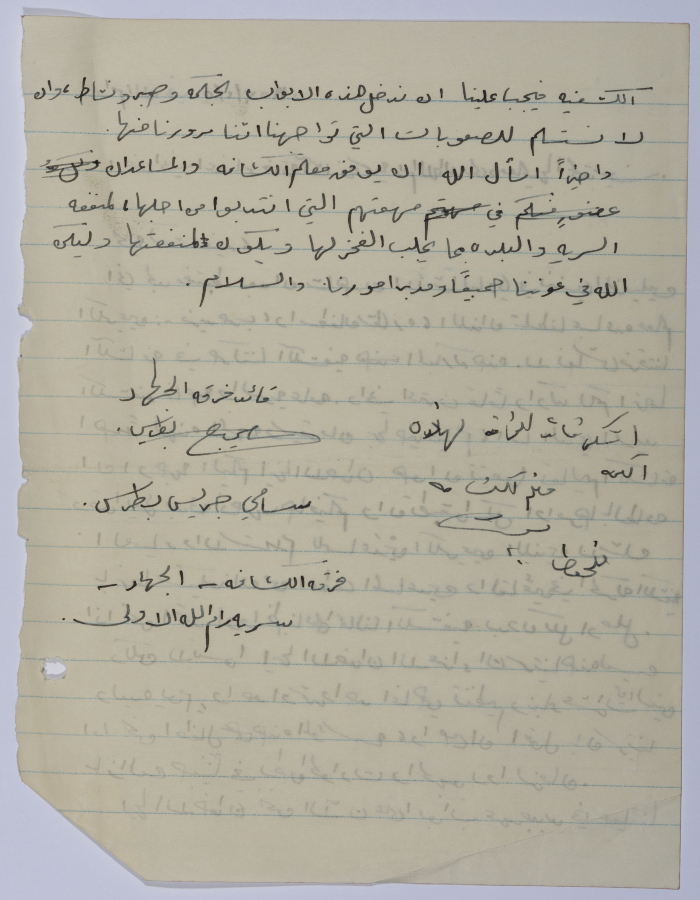 الكشفيه فيجب علينا ان ندخل هذه الابواب بحكمه وصبر ونشاط، وان
لا نستسلم للصعوبات التي تواجهنا اثناء مرورنا فيها.
واخيراً اسأل الله ان يوفق معلم الكشافه والمساعدان
في مهمتهم التي انتدبوا من اجلها، لمنفعه
السريه والبلده بما يجلب الفخر لها ويكون لمنفعتها وليكن
الله في عوننا جميعًا ومدبر امورنا والسلام.
قائد فرقه الجهاد
بطرس.
اشكر قائد
معلم الكشافه
سامي جريس بطرس.
فرقه الكشافه - الجهاد -
سريه رام الله الاولى.